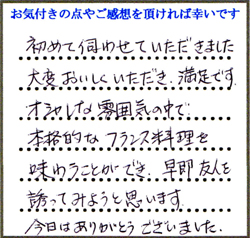 お気付きの点やご感想を頂ければ幸いです
初めて伺わせていただきました
大変おいしくいただき、満足です。
オシャレな雰囲気の中で
本格的なフランス料理を
味わうことができ、早即友人を
誘ってみようと思います。
今日はありがとうございました。